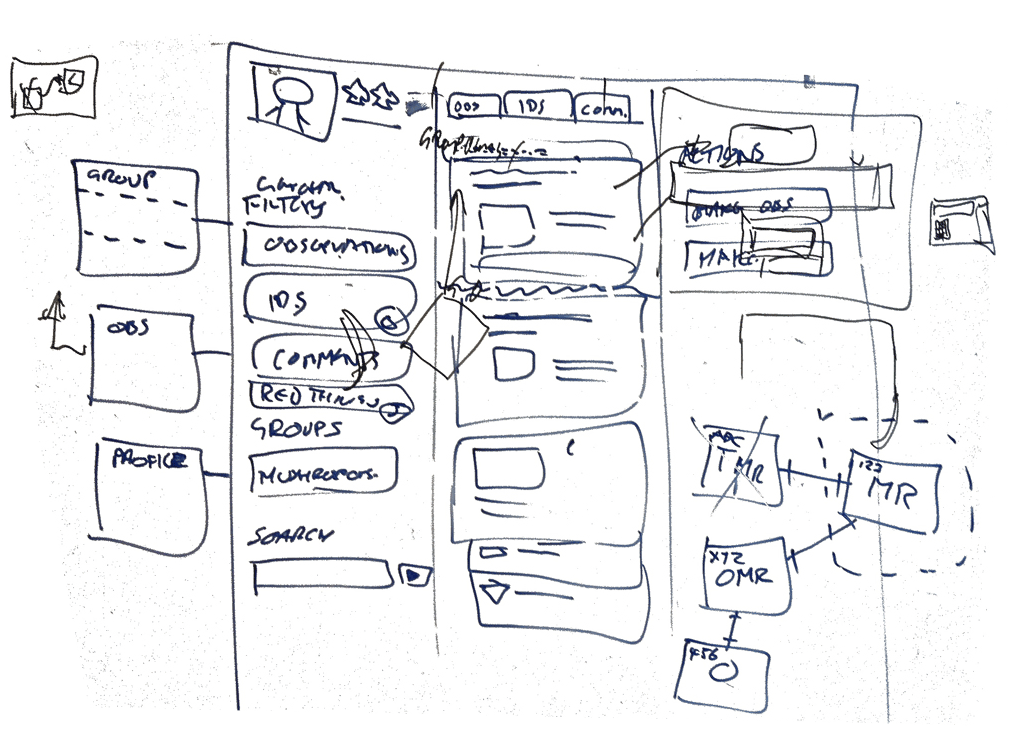 GROUP
OBS
PROFILE
FILTERS
OBSERVATIONS
IDS
COMMENTS
RED THINGS
GROUPS
MUSHROOMS
SEARCH
OBS
IDS
COMM.
ACTIONS
OBS
MAKE
ABC
MR
123
MR
XYZ
OMR
456
O